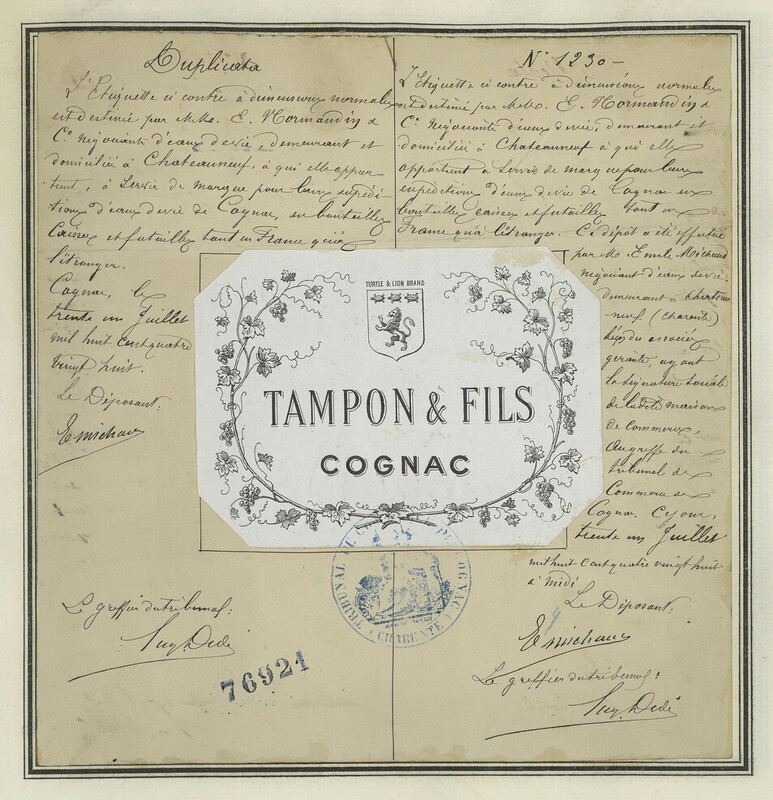 Duplicata
L'Etiquette ci contre à dimensions normales
est destinée par M.M. E. Normandin &
Cie Négociants d'eaux de vie, demeurant et
domiciliés à Chateauneuf, à qui elle appar
tient, à servir de marque pour leurs expédi-
tions d'eaux de vie de Cognac, en bouteilles
Caisses et futailles tant en France qu'à
l'étranger.
Cognac, le
trente un Juillet
mil huit cent quatre
vingt huit.
Le Déposant:
E Michaud
Le greffier du tribunal:
N° 1230 -
L'Etiquette ci contre à dimensions normales
est destinée par M.M. E. Normandin &
Cie Négociants d'eaux de vie, demeurant et
domiciliés à Chateauneuf à qui elle
appartient à servir de marque pour leurs
expéditions d'eaux de vie de Cognac en
bouteilles caisses et futailles tant en
France qu'à l'étranger. Ce dépôt a été effectué
par M. Emile Michaud
négociant d'eaux de vie
demeurant à Chateau
neuf (Charente)
l'un des associés
gérants, ayant
la signature sociale
de ladite maison
de commerce,
au greffe du
tribunal de
Commerce de
Cognac. Ce jour,
trente un Juillet
mil huit cent quatre vingt huit
à midi
Le Déposant:
E Michaud
Le greffier du tribunal:
TURTLE & LION BRAND
TAMPON & FILS
COGNAC
TRIBUNAL DE COGNAC
CHARENTE
76921